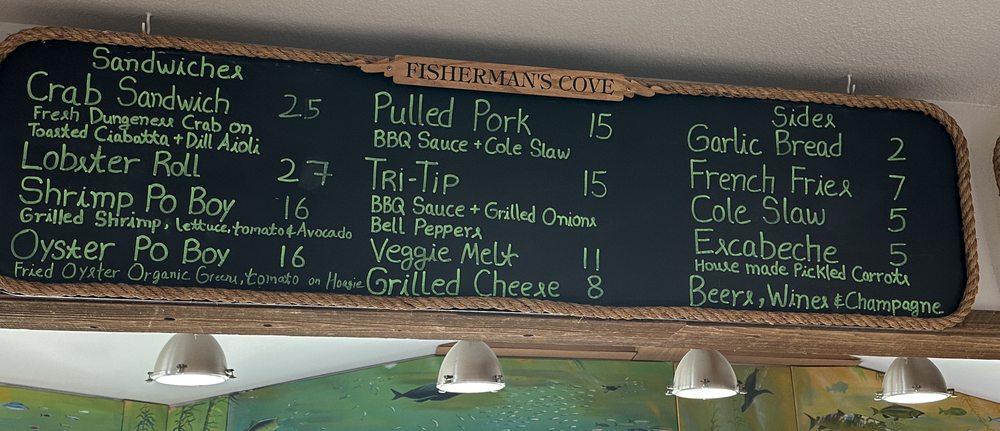 FISHERMAN'S COVE
Sandwiches
Crab Sandwich 25
Fresh Dungeness Crab on
Toasted Ciabatta + Dill Aioli
Lobster Roll 27
Shrimp Po Boy 16
Grilled Shrimp, lettuce, tomato & Avocado
Oyster Po Boy 16
Fried Oyster Organic Greens, tomato on Hoagie
Pulled Pork 15
BBQ Sauce + Cole Slaw
Tri-Tip 15
BBQ Sauce + Grilled Onions
Bell Peppers
Veggie Melt 11
Grilled Cheese 8
Sides
Garlic Bread 2
French Fries 7
Cole Slaw 5
Escabeche 5
House made Pickled Carrots
Beers, Wines & Champagne